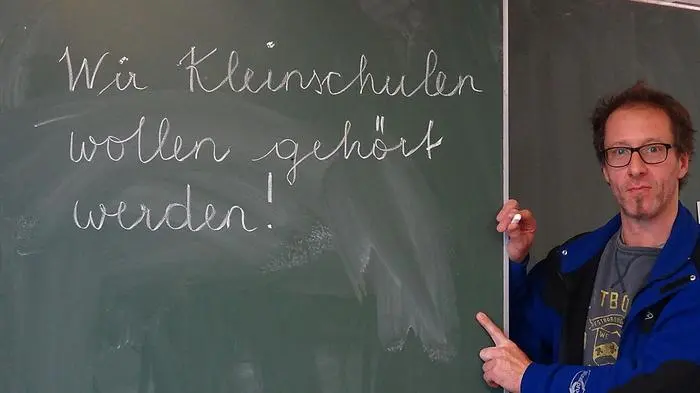 Wir Kleinschulen
wollen gehört
werden!
TBO